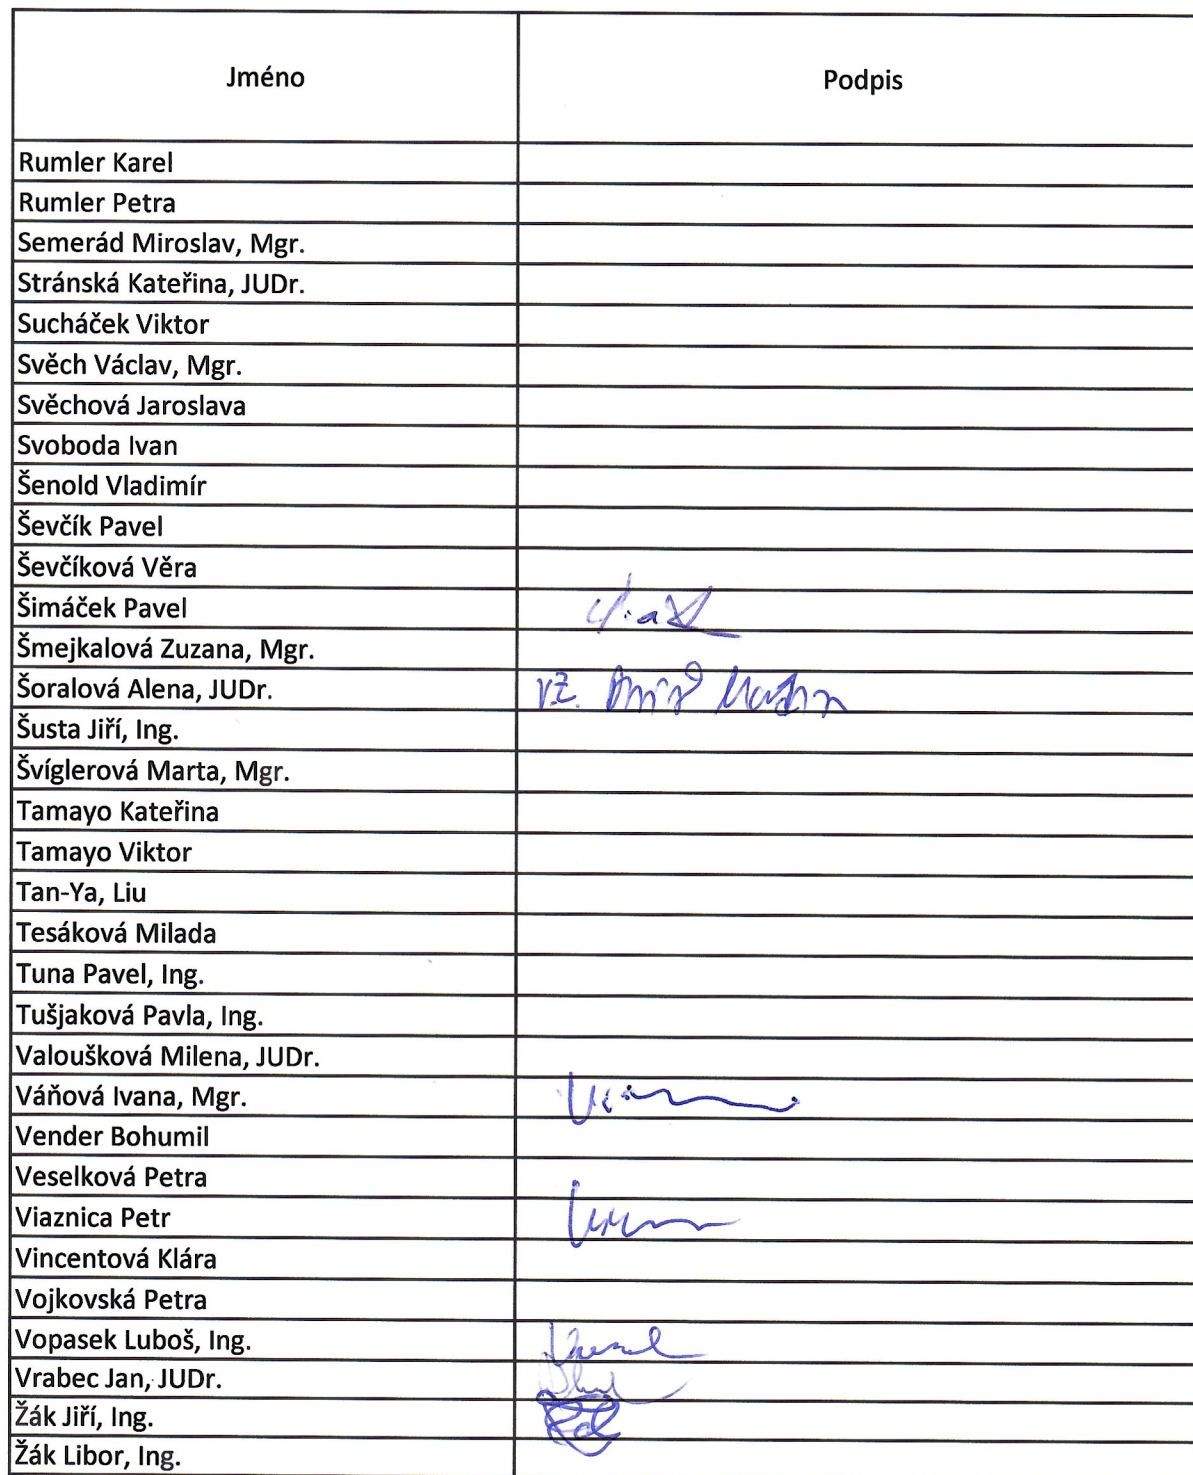 Jméno Podpis
Rumler Karel
Rumler Petra
Semerád Miroslav, Mgr.
Stránská Kateřina, JUDr.
Sucháček Viktor
Svěch Václav, Mgr.
Svěchová Jaroslava
Svoboda Ivan
Šenold Vladimír
Ševčík Pavel
Ševčíková Věra
Šimáček Pavel
Šmejkalová Zuzana, Mgr.
Šoralová Alena, JUDr.
Šusta Jiří, Ing.
Švíglerová Marta, Mgr.
Tamayo Kateřina
Tamayo Viktor
Tan-Ya, Liu
Tesáková Milada
Tuna Pavel, Ing.
Tušjaková Pavla, Ing.
Valoušková Milena, JUDr.
Váňová Ivana, Mgr.
Vender Bohumil
Veselková Petra
Viaznica Petr
Vincentová Klára
Vojkovská Petra
Vopasek Luboš, Ing.
Vrabec Jan, JUDr.
Žák Jiří, Ing.
Žák Libor, Ing.